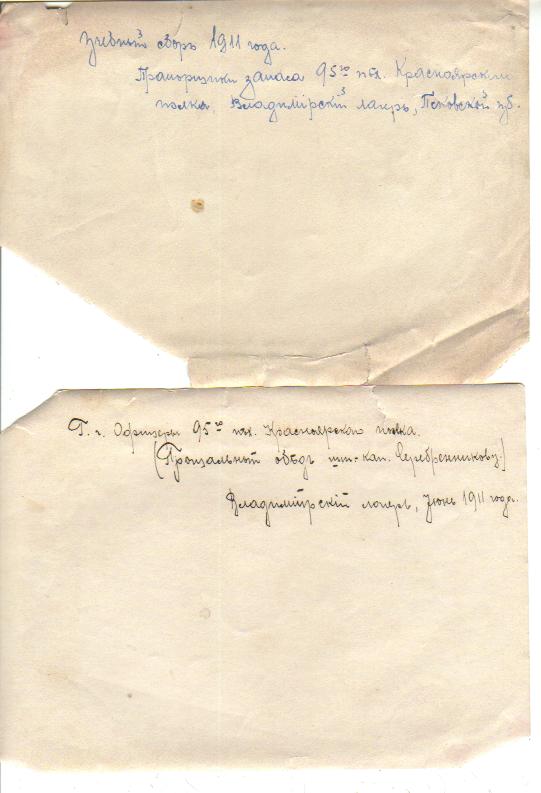 Учебный сборъ 1911 года.
Прапорщики запаса 95го пѣх. Красноярскаго
полка, Владимірскій лагерь, Псковской губ.
Г. г. Офицеры 95го пѣх. Красноярскаго полка.
(Прощальный обѣдъ шт.-кап. Серебренникову.)
Владимірскій лагерь, Іюнь 1911 года.